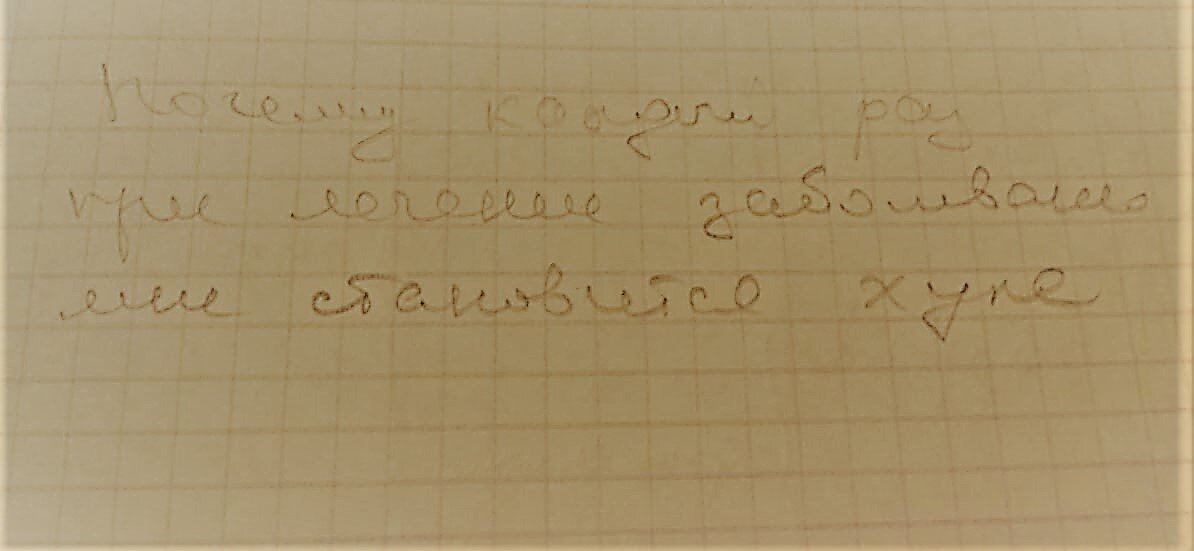 Почему каждый раз
при лечении заболевание
мне становится хуже